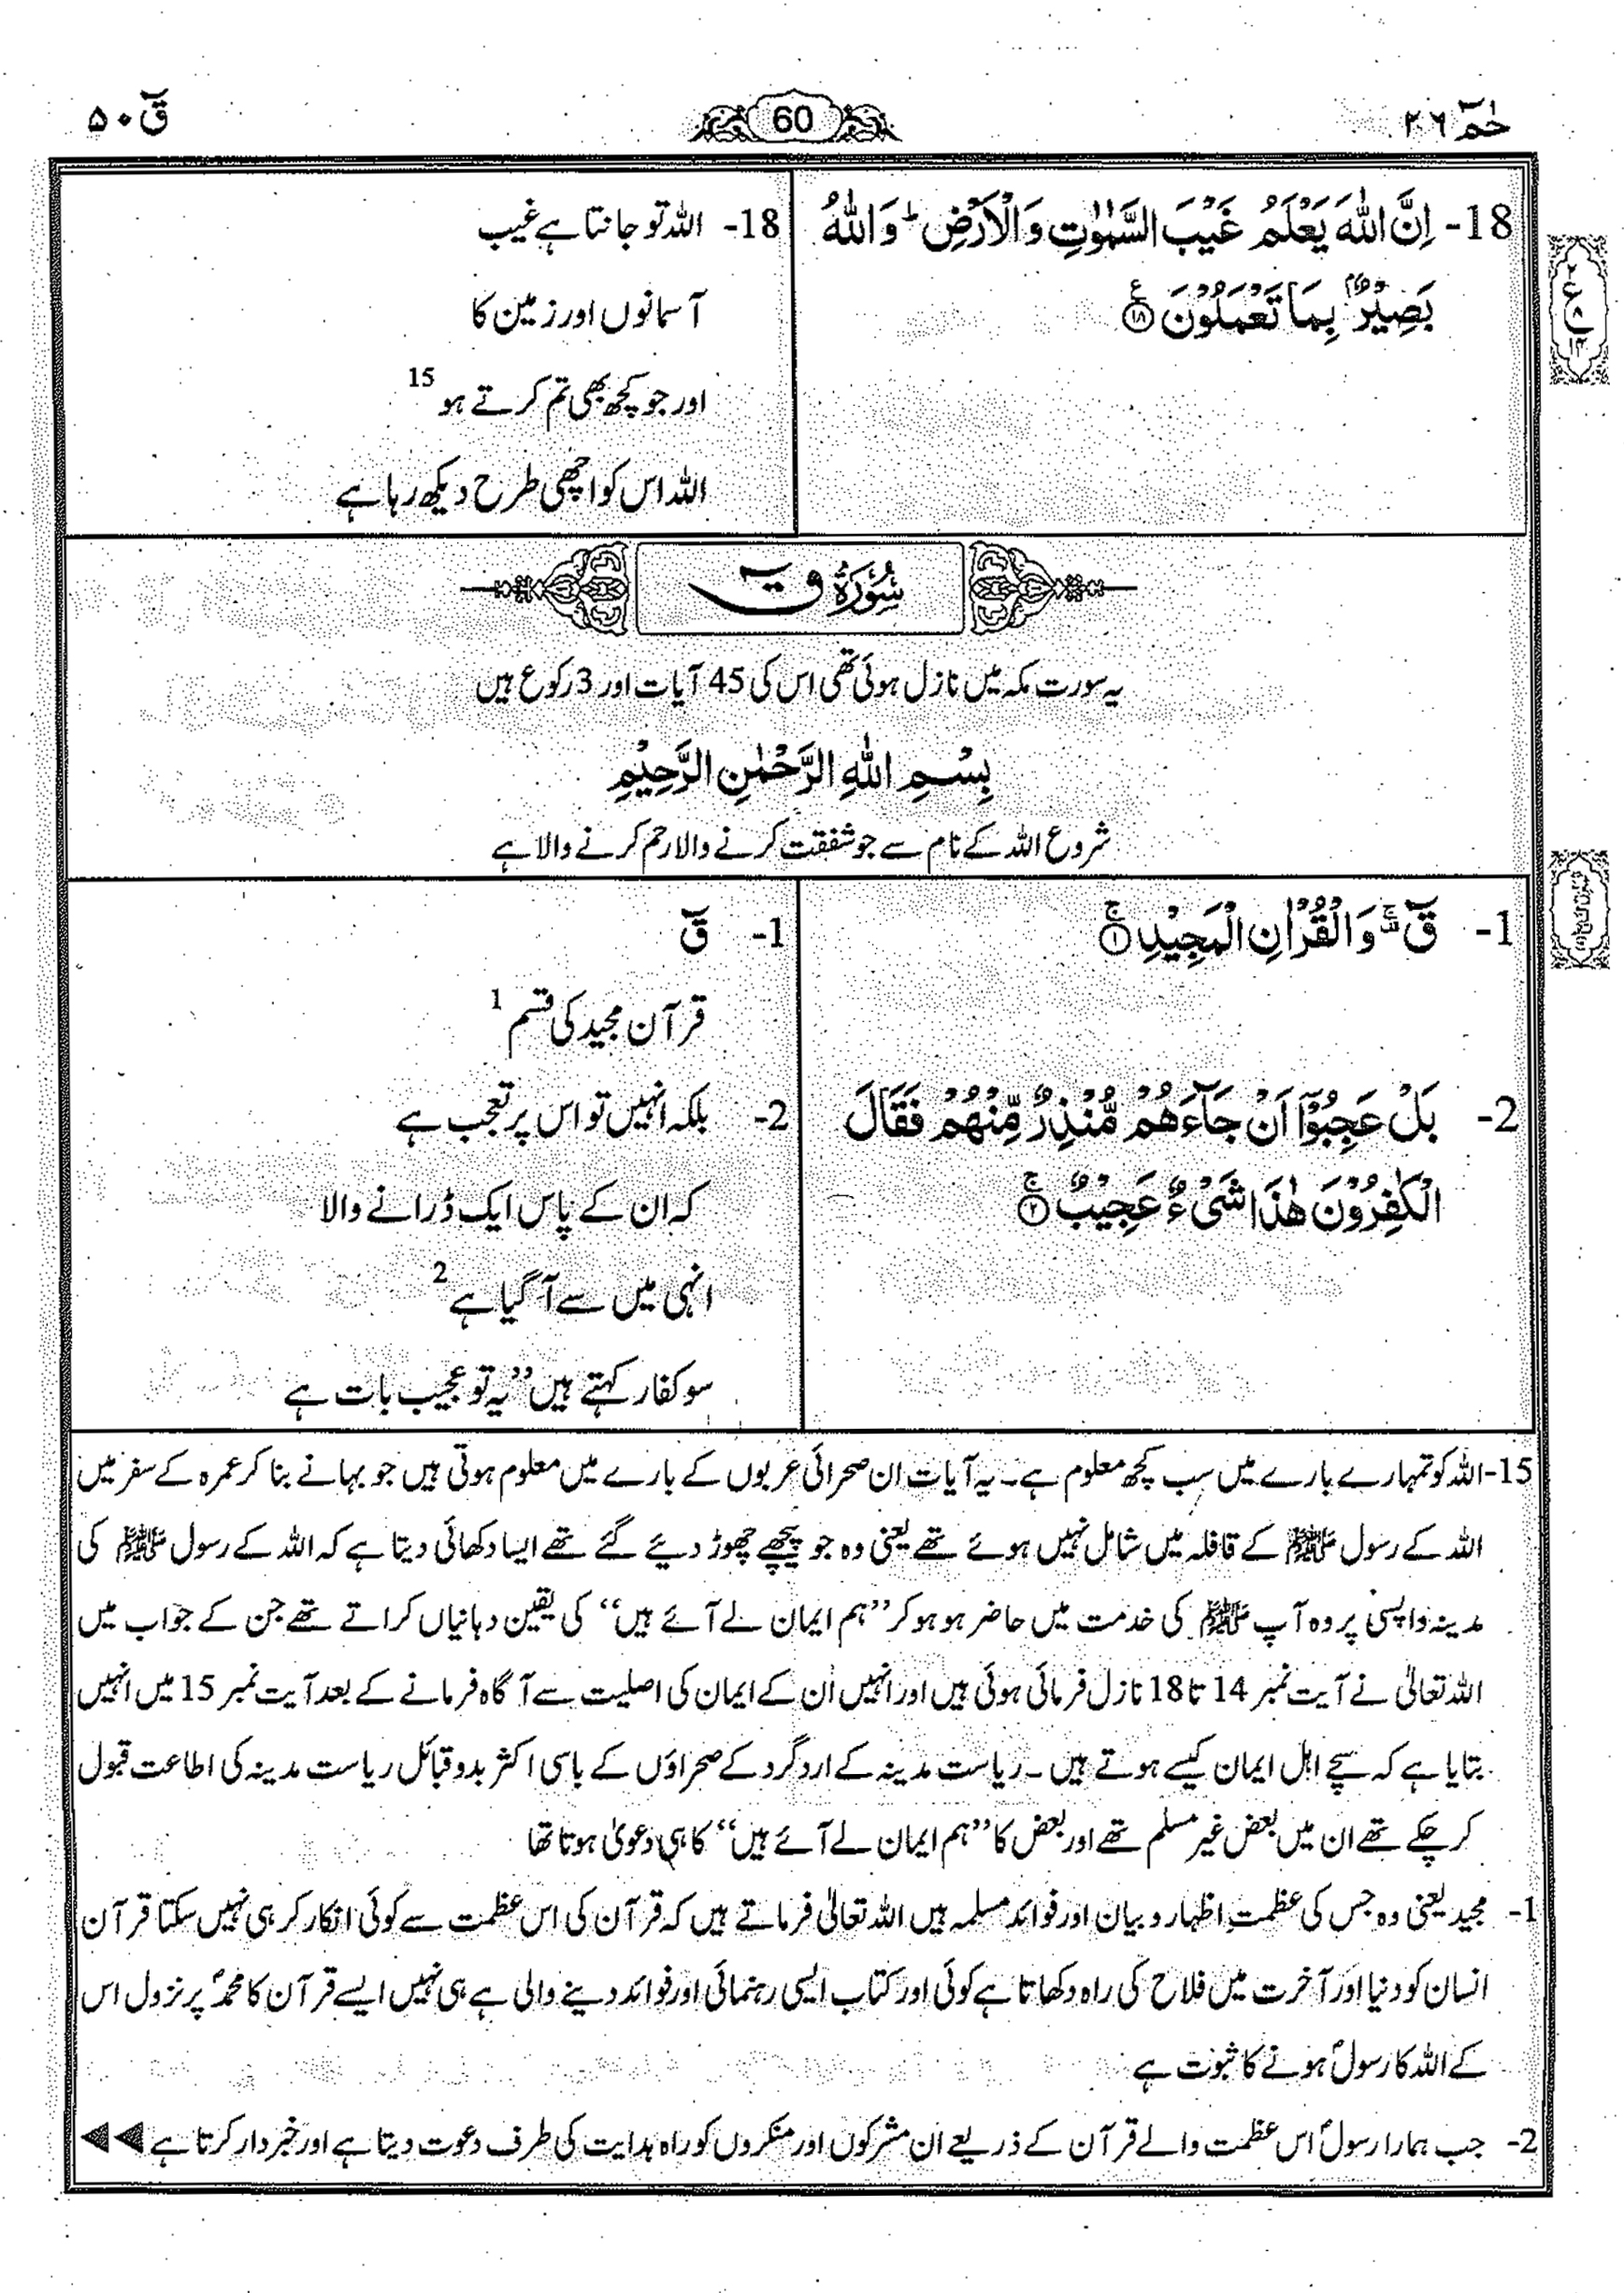 حٰمٓ ۲۶
60
قٓ ۵۰
18- اِنَّ اللّٰهَ يَعْلَمُ غَيْبَ السَّمٰوٰتِ وَالْاَرْضِ ؕ وَاللّٰهُ
بَصِيْرٌۢ بِمَا تَعْمَلُوْنَ ﴿۱۸﴾
18- اللہ تو جانتا ہے غیب
آسمانوں اور زمین کا
اور جو کچھ بھی تم کرتے ہو 15
اللہ اس کو اچھی طرح دیکھ رہا ہے
سُوْرَةُ قٓ
یہ سورت مکہ میں نازل ہوئی تھی اس کی 45 آیات اور 3 رکوع ہیں
بِسْمِ اللّٰهِ الرَّحْمٰنِ الرَّحِيْمِ
شروع اللہ کے نام سے جو شفقت کرنے والا رحم کرنے والا ہے
1- قٓ ۚ وَالْقُرْاٰنِ الْمَجِيْدِ ﴿۱﴾
1- قٓ
قرآن مجید کی قسم 1
2- بَلْ عَجِبُوْۤا اَنْ جَآءَهُمْ مُّنْذِرٌ مِّنْهُمْ فَقَالَ
الْكٰفِرُوْنَ هٰذَا شَیْءٌ عَجِيْبٌ ﴿۲﴾
2- بلکہ انہیں تو اس پر تعجب ہے
کہ ان کے پاس ایک ڈرانے والا
انہی میں سے آ گیا ہے 2
سو کفار کہتے ہیں ”یہ تو عجیب بات ہے
15- اللہ کو تمہارے بارے میں سب کچھ معلوم ہے۔ یہ آیات ان صحرائی عربوں کے بارے میں معلوم ہوتی ہیں جو بہانے بنا کر عمرہ کے سفر میں
اللہ کے رسول ﷺ کے قافلہ میں شامل نہیں ہوئے تھے یعنی وہ جو پیچھے چھوڑ دیئے گئے تھے ایسا دکھائی دیتا ہے کہ اللہ کے رسول ﷺ کی
مدینہ واپسی پر وہ آپ ﷺ کی خدمت میں حاضر ہو ہو کر ”ہم ایمان لے آئے ہیں“ کی یقین دہانیاں کراتے تھے جن کے جواب میں
اللہ تعالیٰ نے آیت نمبر 14 تا 18 نازل فرمائی ہوئی ہیں اور انہیں ان کے ایمان کی اصلیت سے آگاہ فرمانے کے بعد آیت نمبر 15 میں انہیں
بتایا ہے کہ سچے اہل ایمان کیسے ہوتے ہیں۔ ریاست مدینہ کے اردگرد کے صحراؤں کے باسی اکثر بدو قبائل ریاست مدینہ کی اطاعت قبول
کر چکے تھے ان میں بعض غیر مسلم تھے اور بعض کا ”ہم ایمان لے آئے ہیں“ کا ہی دعویٰ ہوتا تھا
1- مجید یعنی وہ جس کی عظمتِ اظہار و بیان اور فوائد مسلمہ ہیں اللہ تعالیٰ فرماتے ہیں کہ قرآن کی اس عظمت سے کوئی انکار کر ہی نہیں سکتا قرآن
انسان کو دنیا اور آخرت میں فلاح کی راہ دکھاتا ہے کوئی اور کتاب ایسی رہنمائی اور فوائد دینے والی ہے ہی نہیں ایسے قرآن کا محمدؐ پر نزول اس
کے اللہ کا رسولؐ ہونے کا ثبوت ہے
2- جب ہمارا رسولؐ اس عظمت والے قرآن کے ذریعے ان مشرکوں اور منکروں کو راہ ہدایت کی طرف دعوت دیتا ہے اور خبردار کرتا ہے